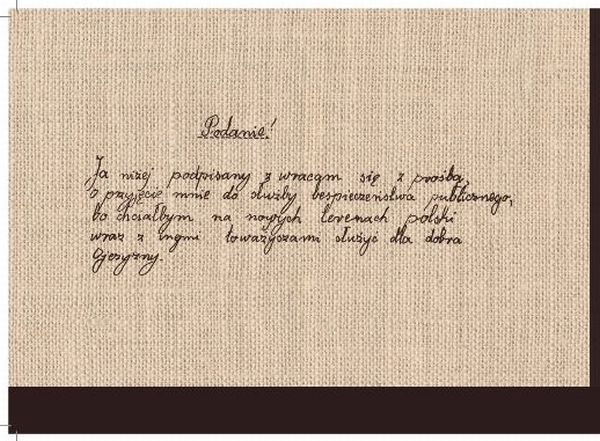 Podanie!
Ja niżej podpisany zwracam się z prośbą
o przyjęcie mnie do służby bespieczeństwa publicznego,
bo chciałbym na nowych terenach polski
wraz z ingmi toważyczami służyć dla dobra
Ojczyzny.